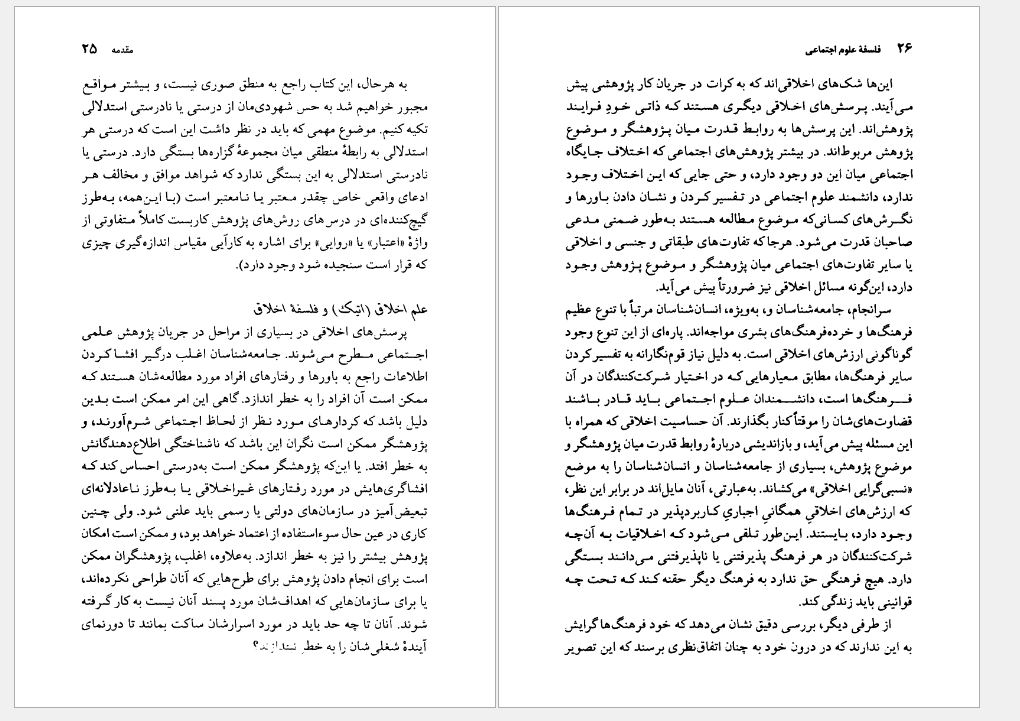 مقدمه ۲۵
به هرحال، این کتاب راجع به منطق صوری نیست، و بیشتر مواقع
مجبور خواهیم شد به حس شهودی‌مان از درستی یا نادرستی استدلالی
تکیه کنیم. موضوع مهمی که باید در نظر داشت این است که درستی هر
استدلالی به رابطهٔ منطقی میان مجموعهٔ گزاره‌ها بستگی دارد. درستی یا
نادرستی استدلالی به این بستگی ندارد که شواهد موافق و مخالف هر
ادعای واقعی خاص چقدر معتبر یا نامعتبر است (با این‌همه، به‌طرز
گیج‌کننده‌ای در درس‌های روش‌های پژوهش کاربست کاملاً متفاوتی از
واژهٔ «اعتبار» یا «روایی» برای اشاره به کارآیی مقیاس اندازه‌گیری چیزی
که قرار است سنجیده شود وجود دارد).
علم اخلاق (اتیک) و فلسفهٔ اخلاق
پرسش‌های اخلاقی در بسیاری از مراحل در جریان پژوهش علمی
اجتماعی مطرح می‌شوند. جامعه‌شناسان اغلب درگیر افشا کردن
اطلاعات راجع به باورها و رفتارهای افراد مورد مطالعه‌شان هستند که
ممکن است آن افراد را به خطر اندازد. گاهی این امر ممکن است بدین
دلیل باشد که کردارهای مورد نظر از لحاظ اجتماعی شرم‌آورند، و
پژوهشگر ممکن است نگران این باشد که ناشناختگی اطلاع‌دهندگانش
به خطر افتد. یا این‌که پژوهشگر ممکن است به‌درستی احساس کند که
افشاگری‌هایش در مورد رفتارهای غیراخلاقی یا به‌طرز ناعادلانه‌ای
تبعیض‌آمیز در سازمان‌های دولتی یا رسمی باید علنی شود. ولی چنین
کاری در عین حال سوءاستفاده از اعتماد خواهد بود، و ممکن است امکان
پژوهش بیشتر را نیز به خطر اندازد. به‌علاوه، اغلب، پژوهشگران ممکن
است برای انجام دادن پژوهش برای طرح‌هایی که آنان طراحی نکرده‌اند،
یا برای سازمان‌هایی که اهداف‌شان مورد پسند آنان نیست به کار گرفته
شوند. آنان تا چه حد باید در مورد اسرارشان ساکت بمانند تا دورنمای
آیندهٔ شغلی‌شان را به خطر نیندازند؟
۲۶ فلسفهٔ علوم اجتماعی
این‌ها شک‌های اخلاقی‌اند که به کرات در جریان کار پژوهشی پیش
می‌آیند. پرسش‌های اخلاقی دیگری هستند که ذاتی خودِ فرایند
پژوهش‌اند. این پرسش‌ها به روابط قدرت میان پژوهشگر و موضوع
پژوهش مربوط‌اند. در بیشتر پژوهش‌های اجتماعی که اختلاف جایگاه
اجتماعی میان این دو وجود دارد، و حتی جایی که این اختلاف وجود
ندارد، دانشمند علوم اجتماعی در تفسیر کردن و نشان دادن باورها و
نگرش‌های کسانی‌که موضوع مطالعه هستند به‌طور ضمنی مدعی
صاحبان قدرت می‌شود. هرجا که تفاوت‌های طبقاتی و جنسی و اخلاقی
یا سایر تفاوت‌های اجتماعی میان پژوهشگر و موضوع پژوهش وجود
دارد، این‌گونه مسائل اخلاقی نیز ضرورتاً پیش می‌آید.
سرانجام، جامعه‌شناسان و، به‌ویژه، انسان‌شناسان مرتباً با تنوع عظیم
فرهنگ‌ها و خرده‌فرهنگ‌های بشری مواجه‌اند. پاره‌ای از این تنوع وجود
گوناگونی ارزش‌های اخلاقی است. به دلیل نیاز قوم‌نگارانه به تفسیر کردن
سایر فرهنگ‌ها، مطابق معیارهایی که در اختیار شرکت‌کنندگان در آن
فرهنگ‌ها است، دانشمندان علوم اجتماعی باید قادر باشند
قضاوت‌های‌شان را موقتاً کنار بگذارند. آن حساسیت اخلاقی که همراه با
این مسئله پیش می‌آید، و بازاندیشی دربارهٔ روابط قدرت میان پژوهشگر و
موضوع پژوهش، بسیاری از جامعه‌شناسان و انسان‌شناسان را به موضع
«نسبی‌گرایی اخلاقی» می‌کشاند. به‌عبارتی، آنان مایل‌اند در برابر این نظر،
که ارزش‌های اخلاقیِ همگانیِ اجباریِ کاربردپذیر در تمام فرهنگ‌ها
وجود دارد، بایستند. این‌طور تلقی می‌شود که اخلاقیات به آن‌چه
شرکت‌کنندگان در هر فرهنگ پذیرفتنی یا ناپذیرفتنی می‌دانند بستگی
دارد. هیچ فرهنگی حق ندارد به فرهنگ دیگر حقنه کند که تحت چه
قوانینی باید زندگی کند.
از طرفی دیگر، بررسی دقیق نشان می‌دهد که خود فرهنگ‌ها گرایش
به این ندارند که در درون خود به چنان اتفاق‌نظری برسند که این تصویر